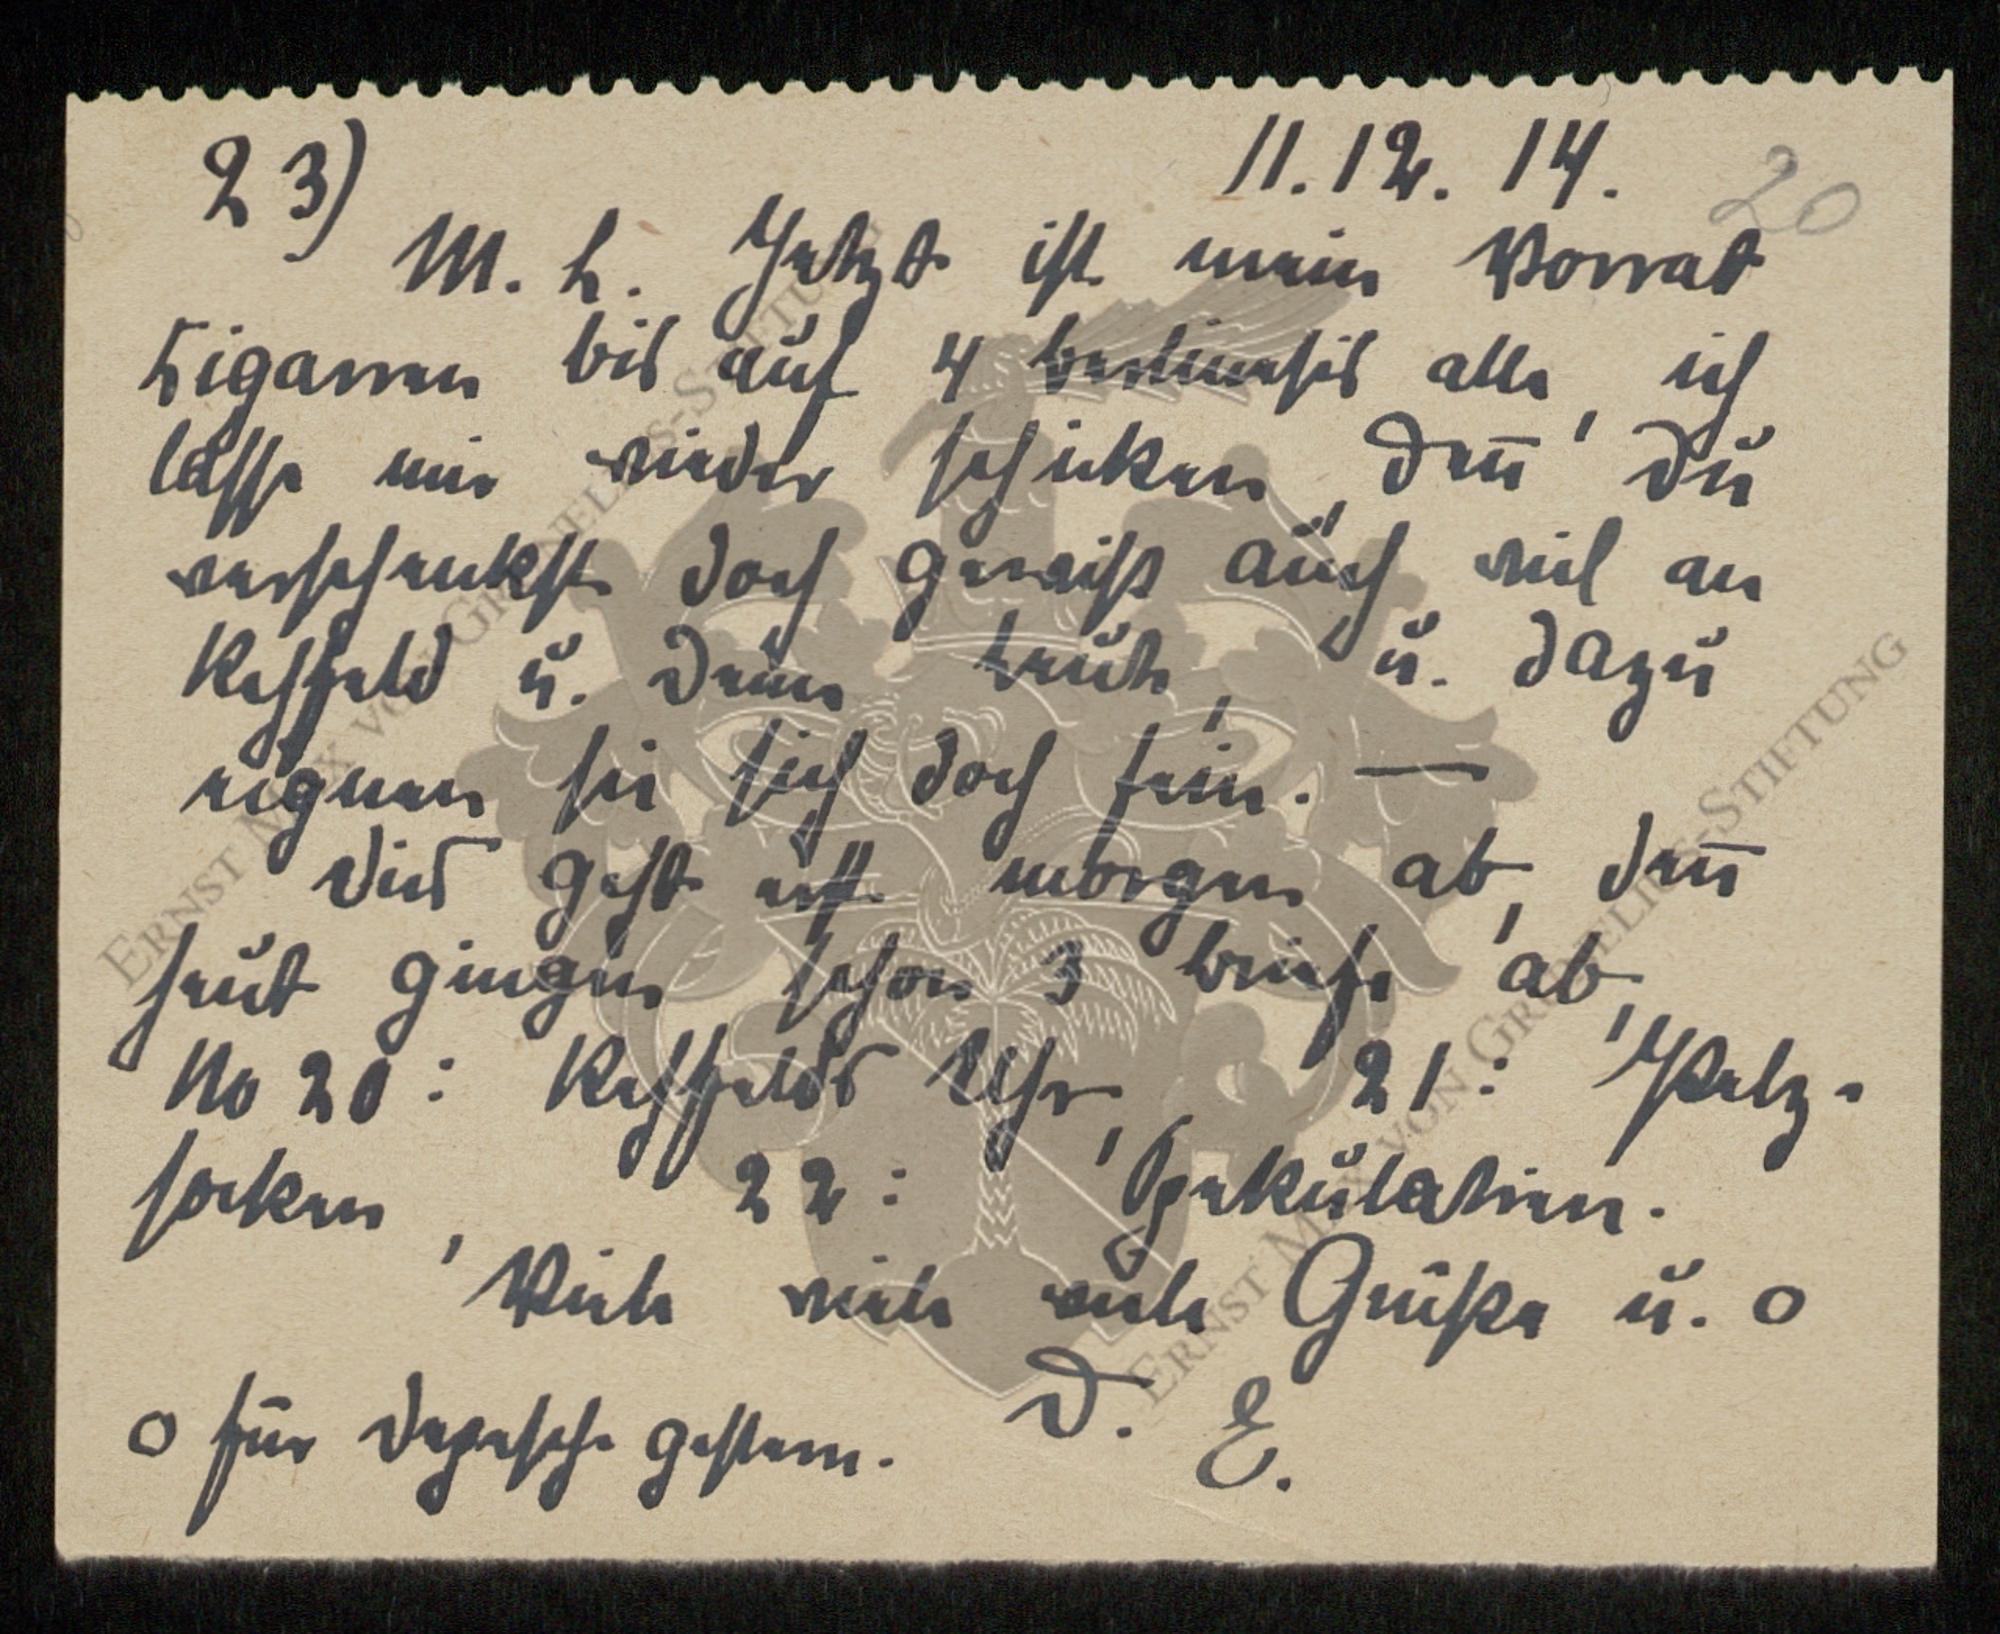 23) 11.12.14. 20
M. L. Jetzt ist mein Vorrat
Cigarren bis auf 4 alle, ich
lasse mir wieder schicken, deñ du
verschenkst doch gewiß auch viel an
Rehfeld u. deine Leute, u. dazu
eignen sie sich doch fein. —
Dies geht erst morgen ab, deñ
heut gingen schon 3 briefe ab,
No 20: Rehfelds Uhr, 21: Pelz-
socken, 22: Spekulatien.
Viele viele viele Grüße u. o
o für depesche gestern. D. E.
ERNST MAX VON GRUNELIUS-STIFTUNG
ERNST MAX VON GRUNELIUS-STIFTUNG